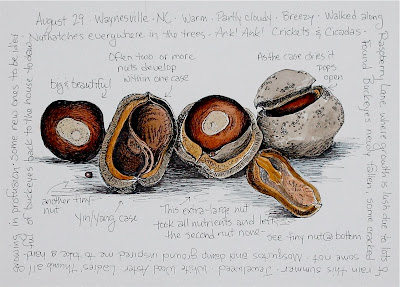 August 29 · Waynesville · NC · Warm · Partly cloudy · Breezy · Walked along
Raspberry Lane where growth is lush due to lots of
rain this summer · Jewelweed · White Wood Aster · Ladies' Thumb all
growing in profusion · Some new ones to be
Nuthatches everywhere in the trees · Ank! Ank! Crickets & Cicadas ·
Found Buckeyes newly fallen, some cracked
some not · Mosquitoes and damp ground inspired me to take a hand
ful of buckeyes back to the house to draw
big & beautiful
Often two or more
nuts develop
within one case
As the case dries it
pops
open
another tiny
nut
Yin/yang case
This extra-large nut
took all nutrients and left
the second nut none -
see tiny nut @ bottom